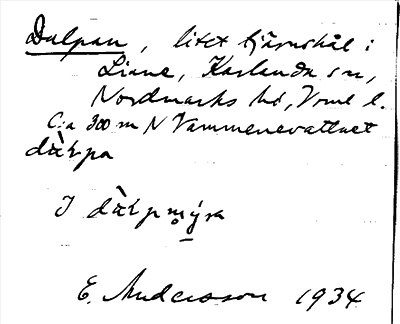 Dalpan, litet tjärnshål i
Liane, Karlanda sn,
Nordmarks hd, Vrml l.
C:a 300 m N Vammenevattnet
I
E. Andersson 1934